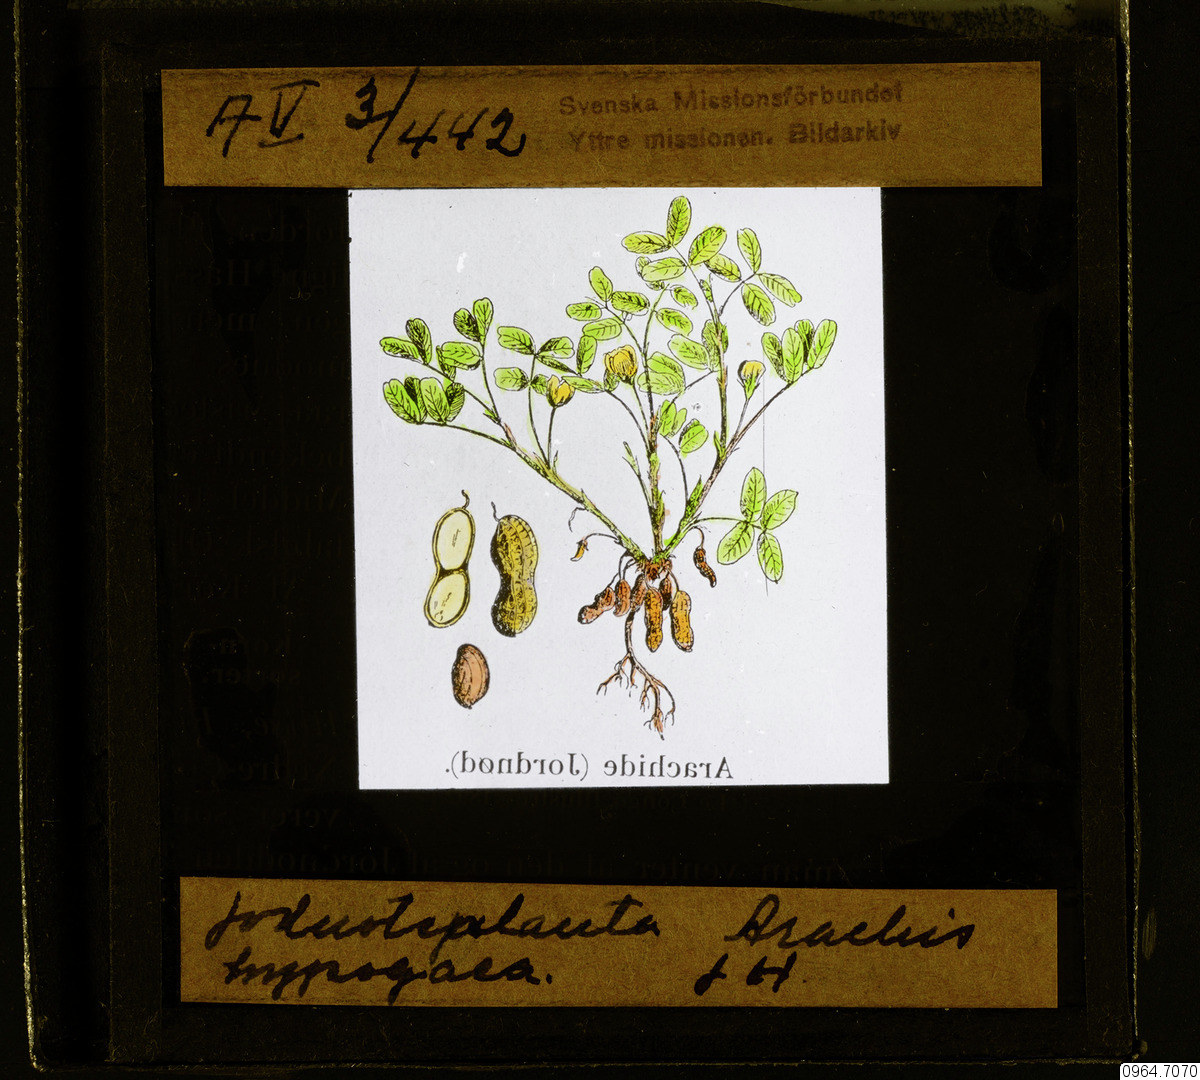 A V 3/442
Svenska Missionsförbundet
Yttre missionen. Bildarkiv
Arachide (Jordnød).
Jordnötsplanta Arachis
hypogaea. J H.
0964.7070